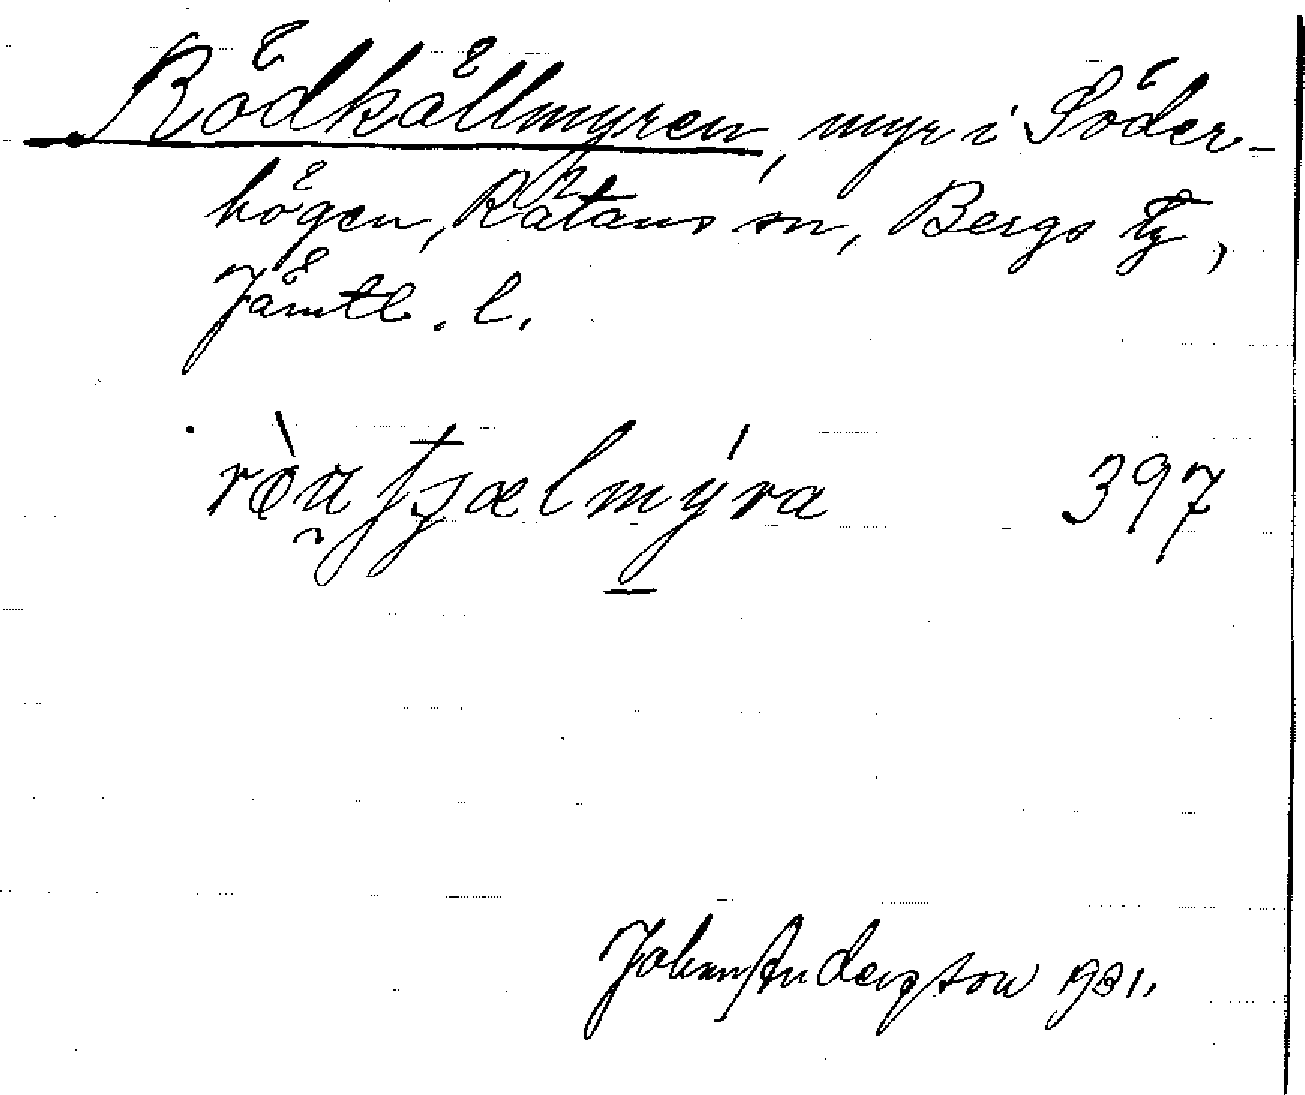 Rödkällmyren, myr i Söder-
högen, Rätans sn, Bergs tg,
Jämtl. l.
397
Johan Andersson 1931.